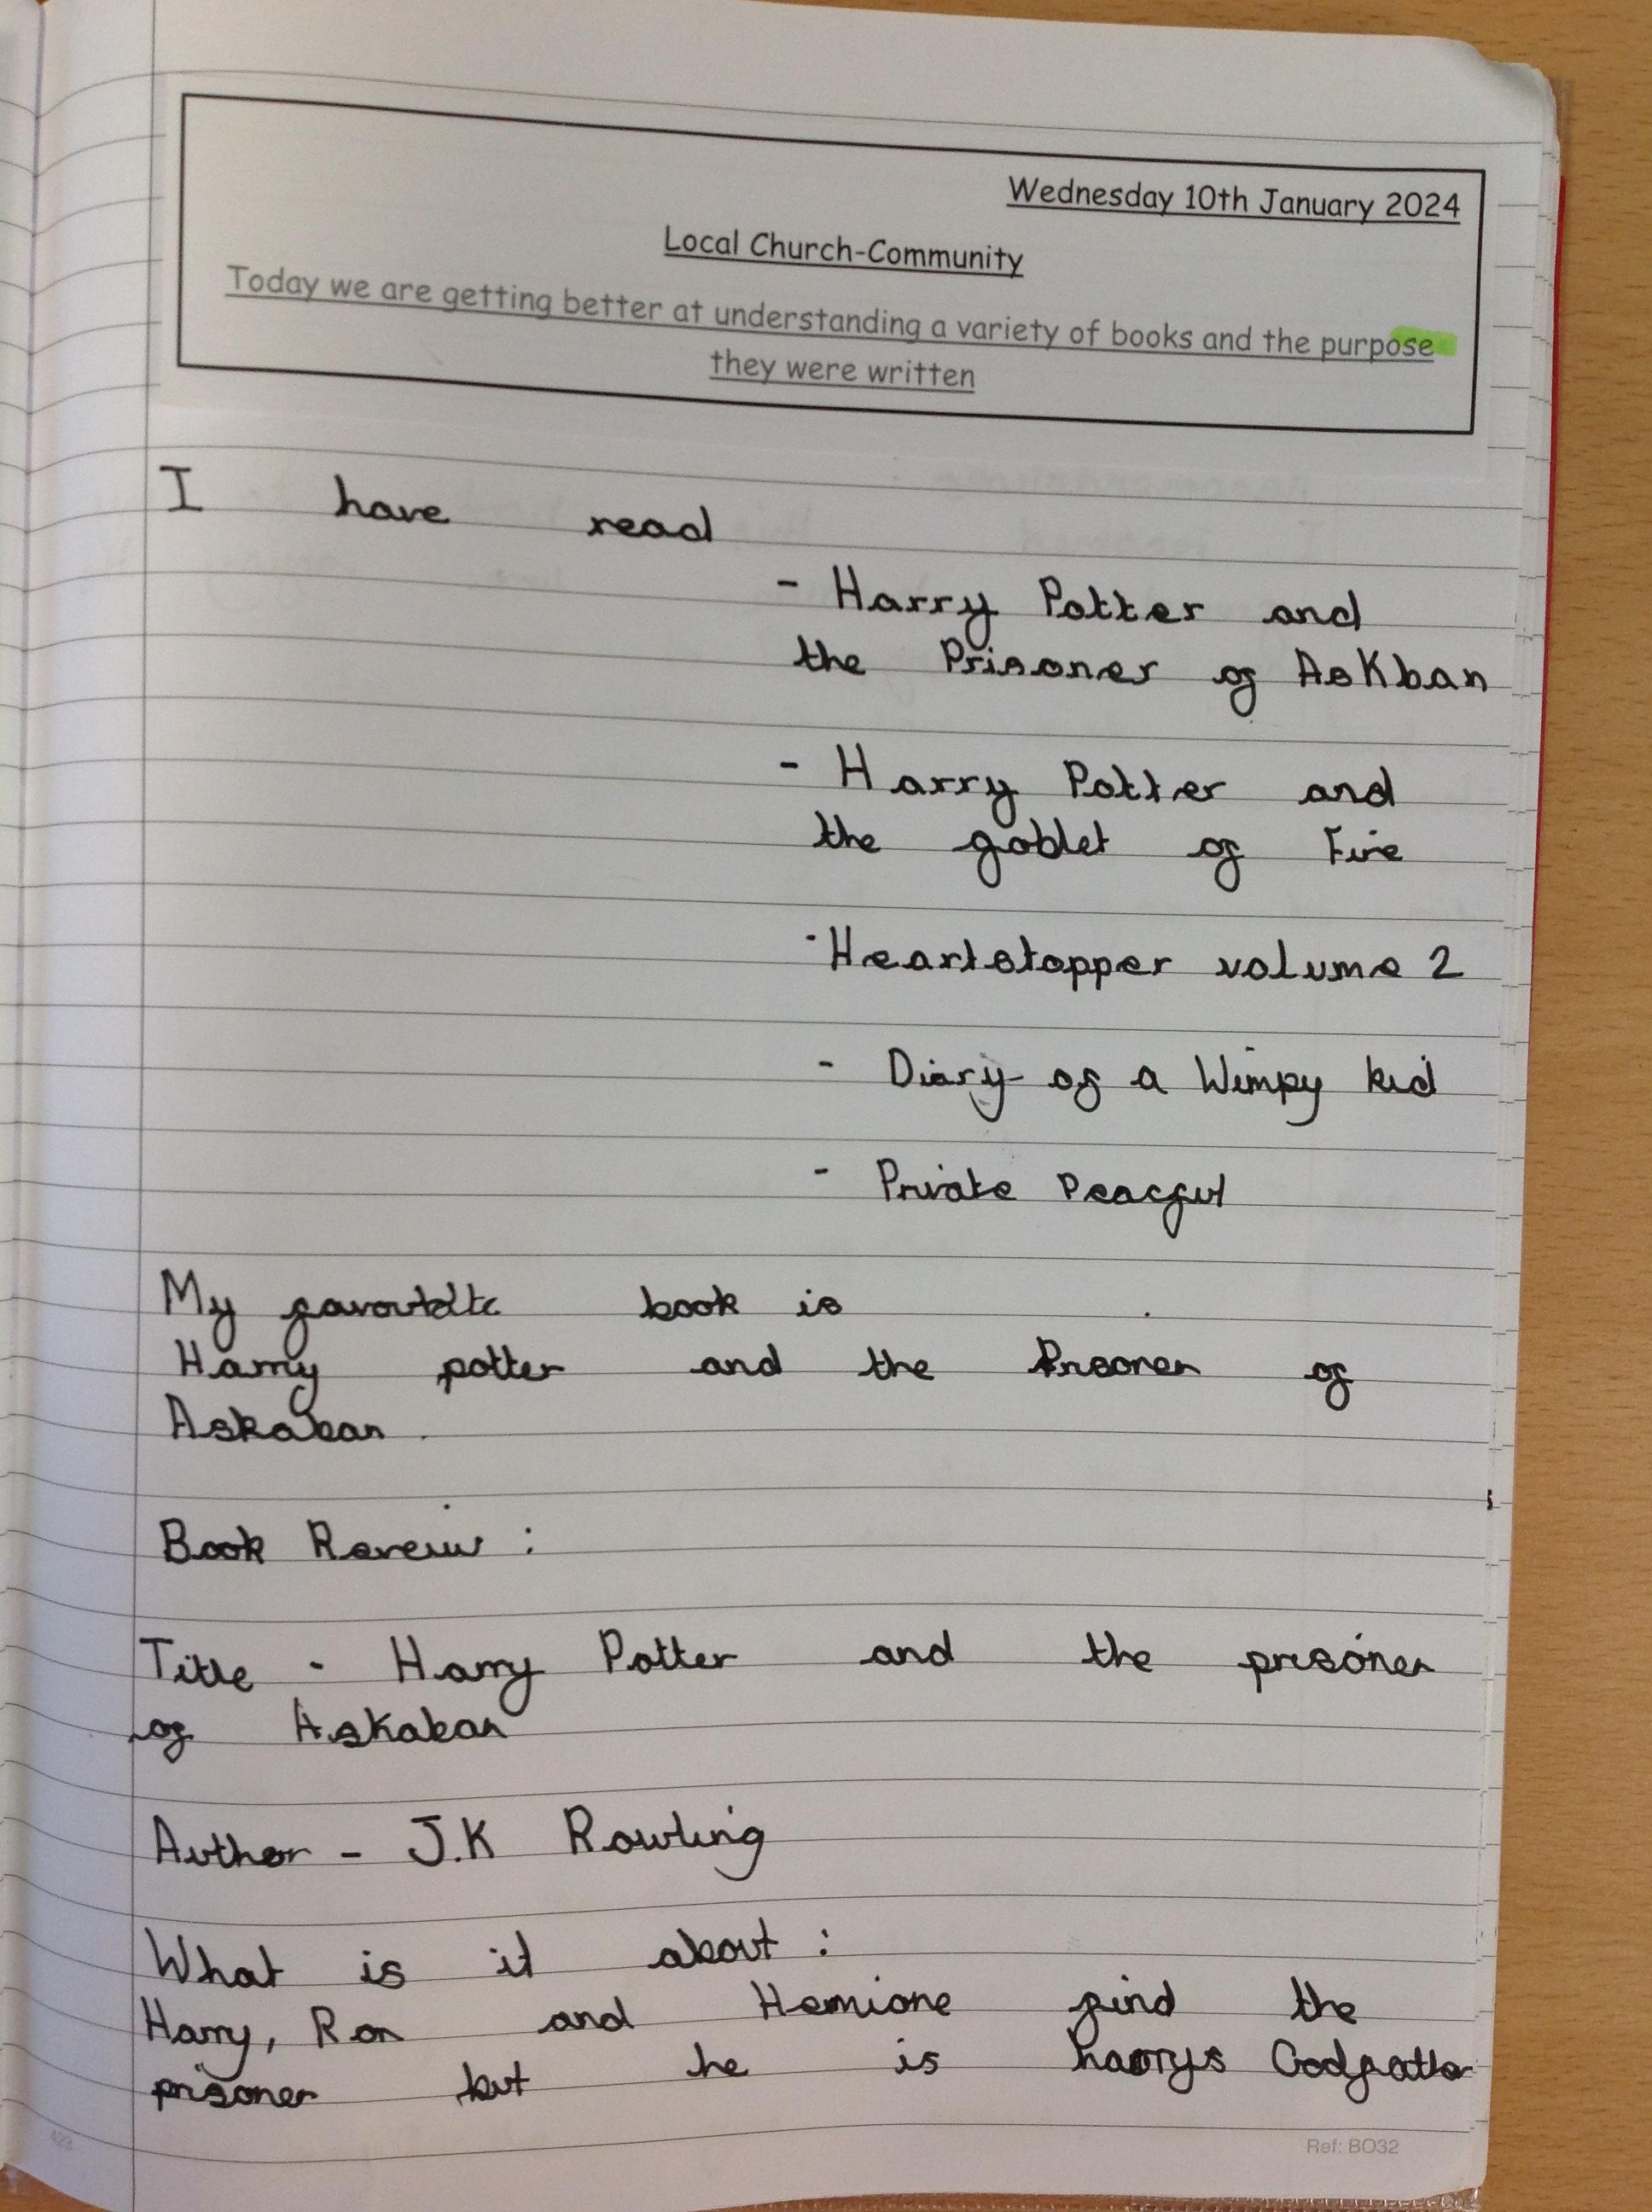 Wednesday 10th January 2024
Local Church-Community
Today we are getting better at understanding a variety of books and the purpose
they were written
I have read
- Harry Potter and
the Prisoner of AsKban
- Harry Potter and
the goblet of Fire
- Heartstopper volume 2
- Diary of a Wimpy kid
- Private Peacful
My book is
Harry potter and the Prisoner of
Askaban.
Book Reveiw :
Title - Harry Potter and the prisoner
of Askaban
Author - J.K Rowling
What is it about :
Harry, Ron and Hemione find the
prisoner but he is harrys Godfather
423
Ref: BO32